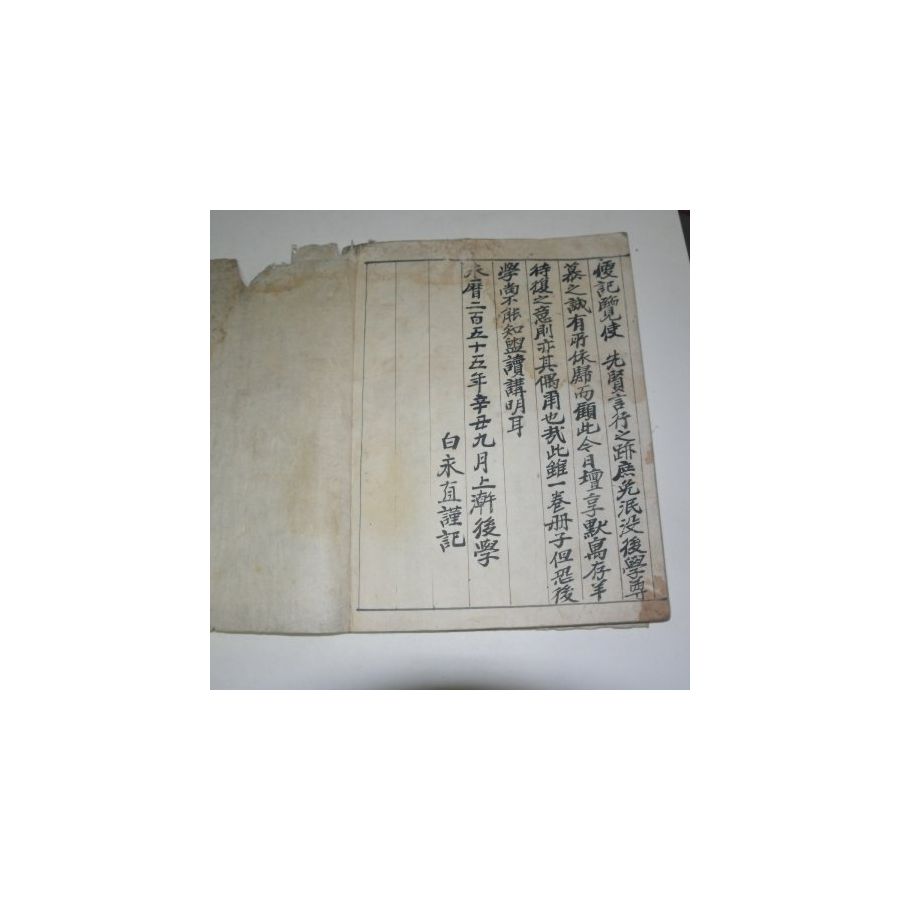 便記臨見使 先賢言行之跡庶免泯没後學尊
慕之誠有所依歸而顧此令月壇享默寓存羊
待復之意則亦其偶甭也哉此雖一卷册子但恐後
學尚不能知盥讀講明耳
永曆二百五十五年辛丑九月上澣後學
白永直謹記